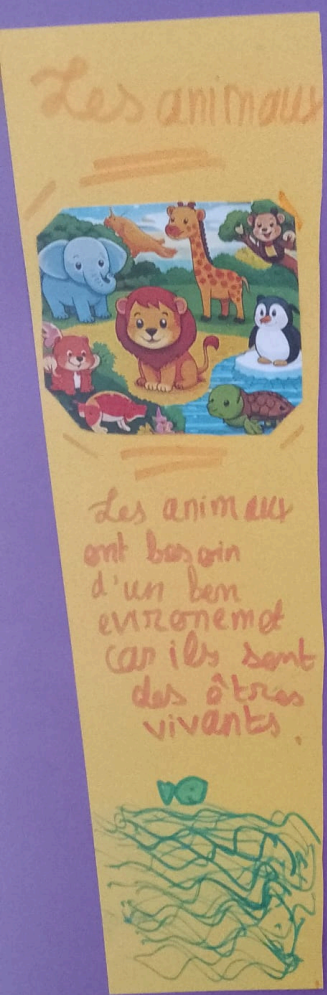 Les animaux
Les animaux
ont besoin
d'un ben
evironemet
car ils sont
des êtres
vivants.